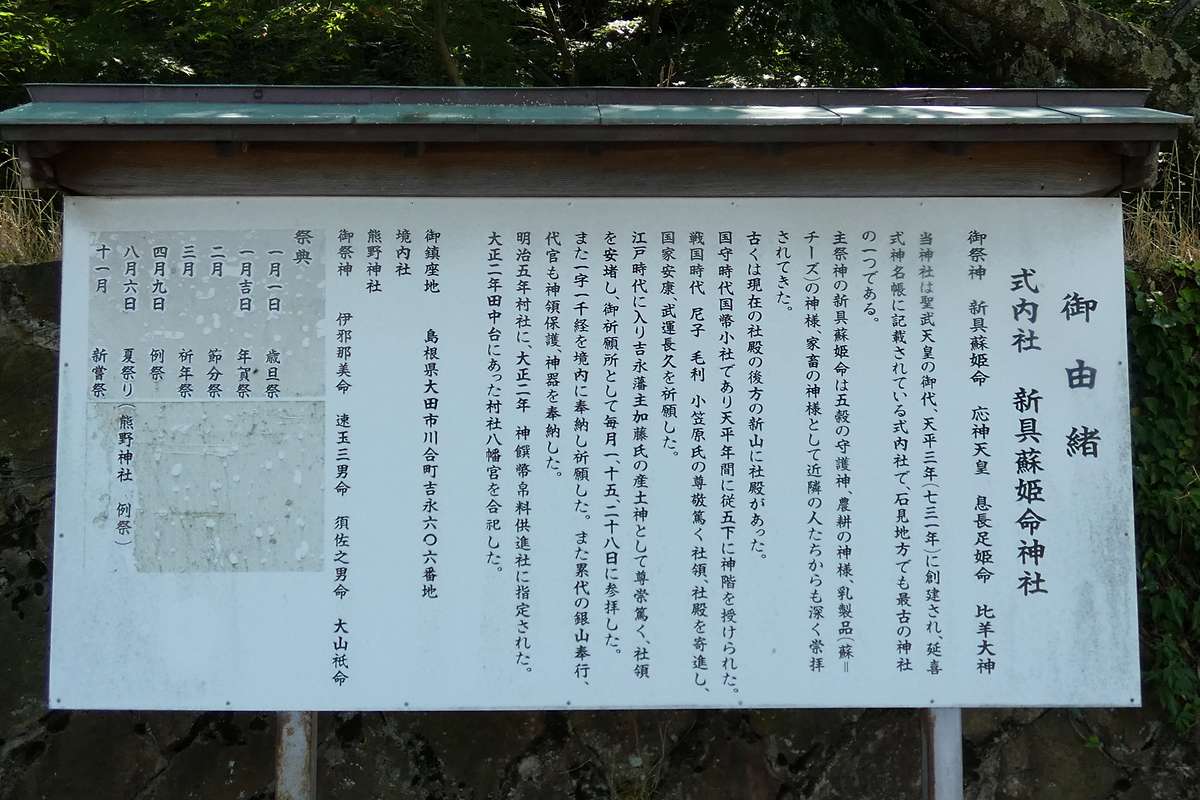 御由緒
式内社 新具蘇姫命神社
御祭神 新具蘇姫命 応神天皇 息長足姫命 比羊大神
当神社は聖武天皇の御代、天平三年(七三一年)に創建され、延喜
式神名帳に記載されている式内社で、石見地方でも最古の神社
の一つである。
主祭神の新具蘇姫命は五穀の守護神、農耕の神様、乳製品(蘇=
チーズ)の神様、家畜の神様として近隣の人たちからも深く崇拝
されてきた。
古くは現在の社殿の後方の新山に社殿があった。
国守時代国幣小社であり天平年間に従五下に神階を授けられた。
戦国時代 尼子 毛利 小笠原氏の尊敬篤く社領、社殿を寄進し、
国家安康、武運長久を祈願した。
江戸時代に入り吉永藩主加藤氏の産土神として尊崇篤く、社領
を安堵し、御祈願所として毎月一、十五、二十八日に参拝した。
また一字一千経を境内に奉納し祈願した。また累代の銀山奉行、
代官も神領保護、神器を奉納した。
明治五年村社に、大正二年 神饌幣帛料供進社に指定された。
大正二年田中台にあった村社八幡宮を合祀した。
御鎮座地 島根県大田市川合町吉永六〇六番地
境内社
熊野神社
御祭神 伊邪那美命 速玉三男命 須佐之男命 大山祇命
祭典
一月一日 歳旦祭
一月吉日 年賀祭
二月 節分祭
三月 祈年祭
四月九日 例祭
八月六日 夏祭り(熊野神社 例祭)
十一月 新嘗祭